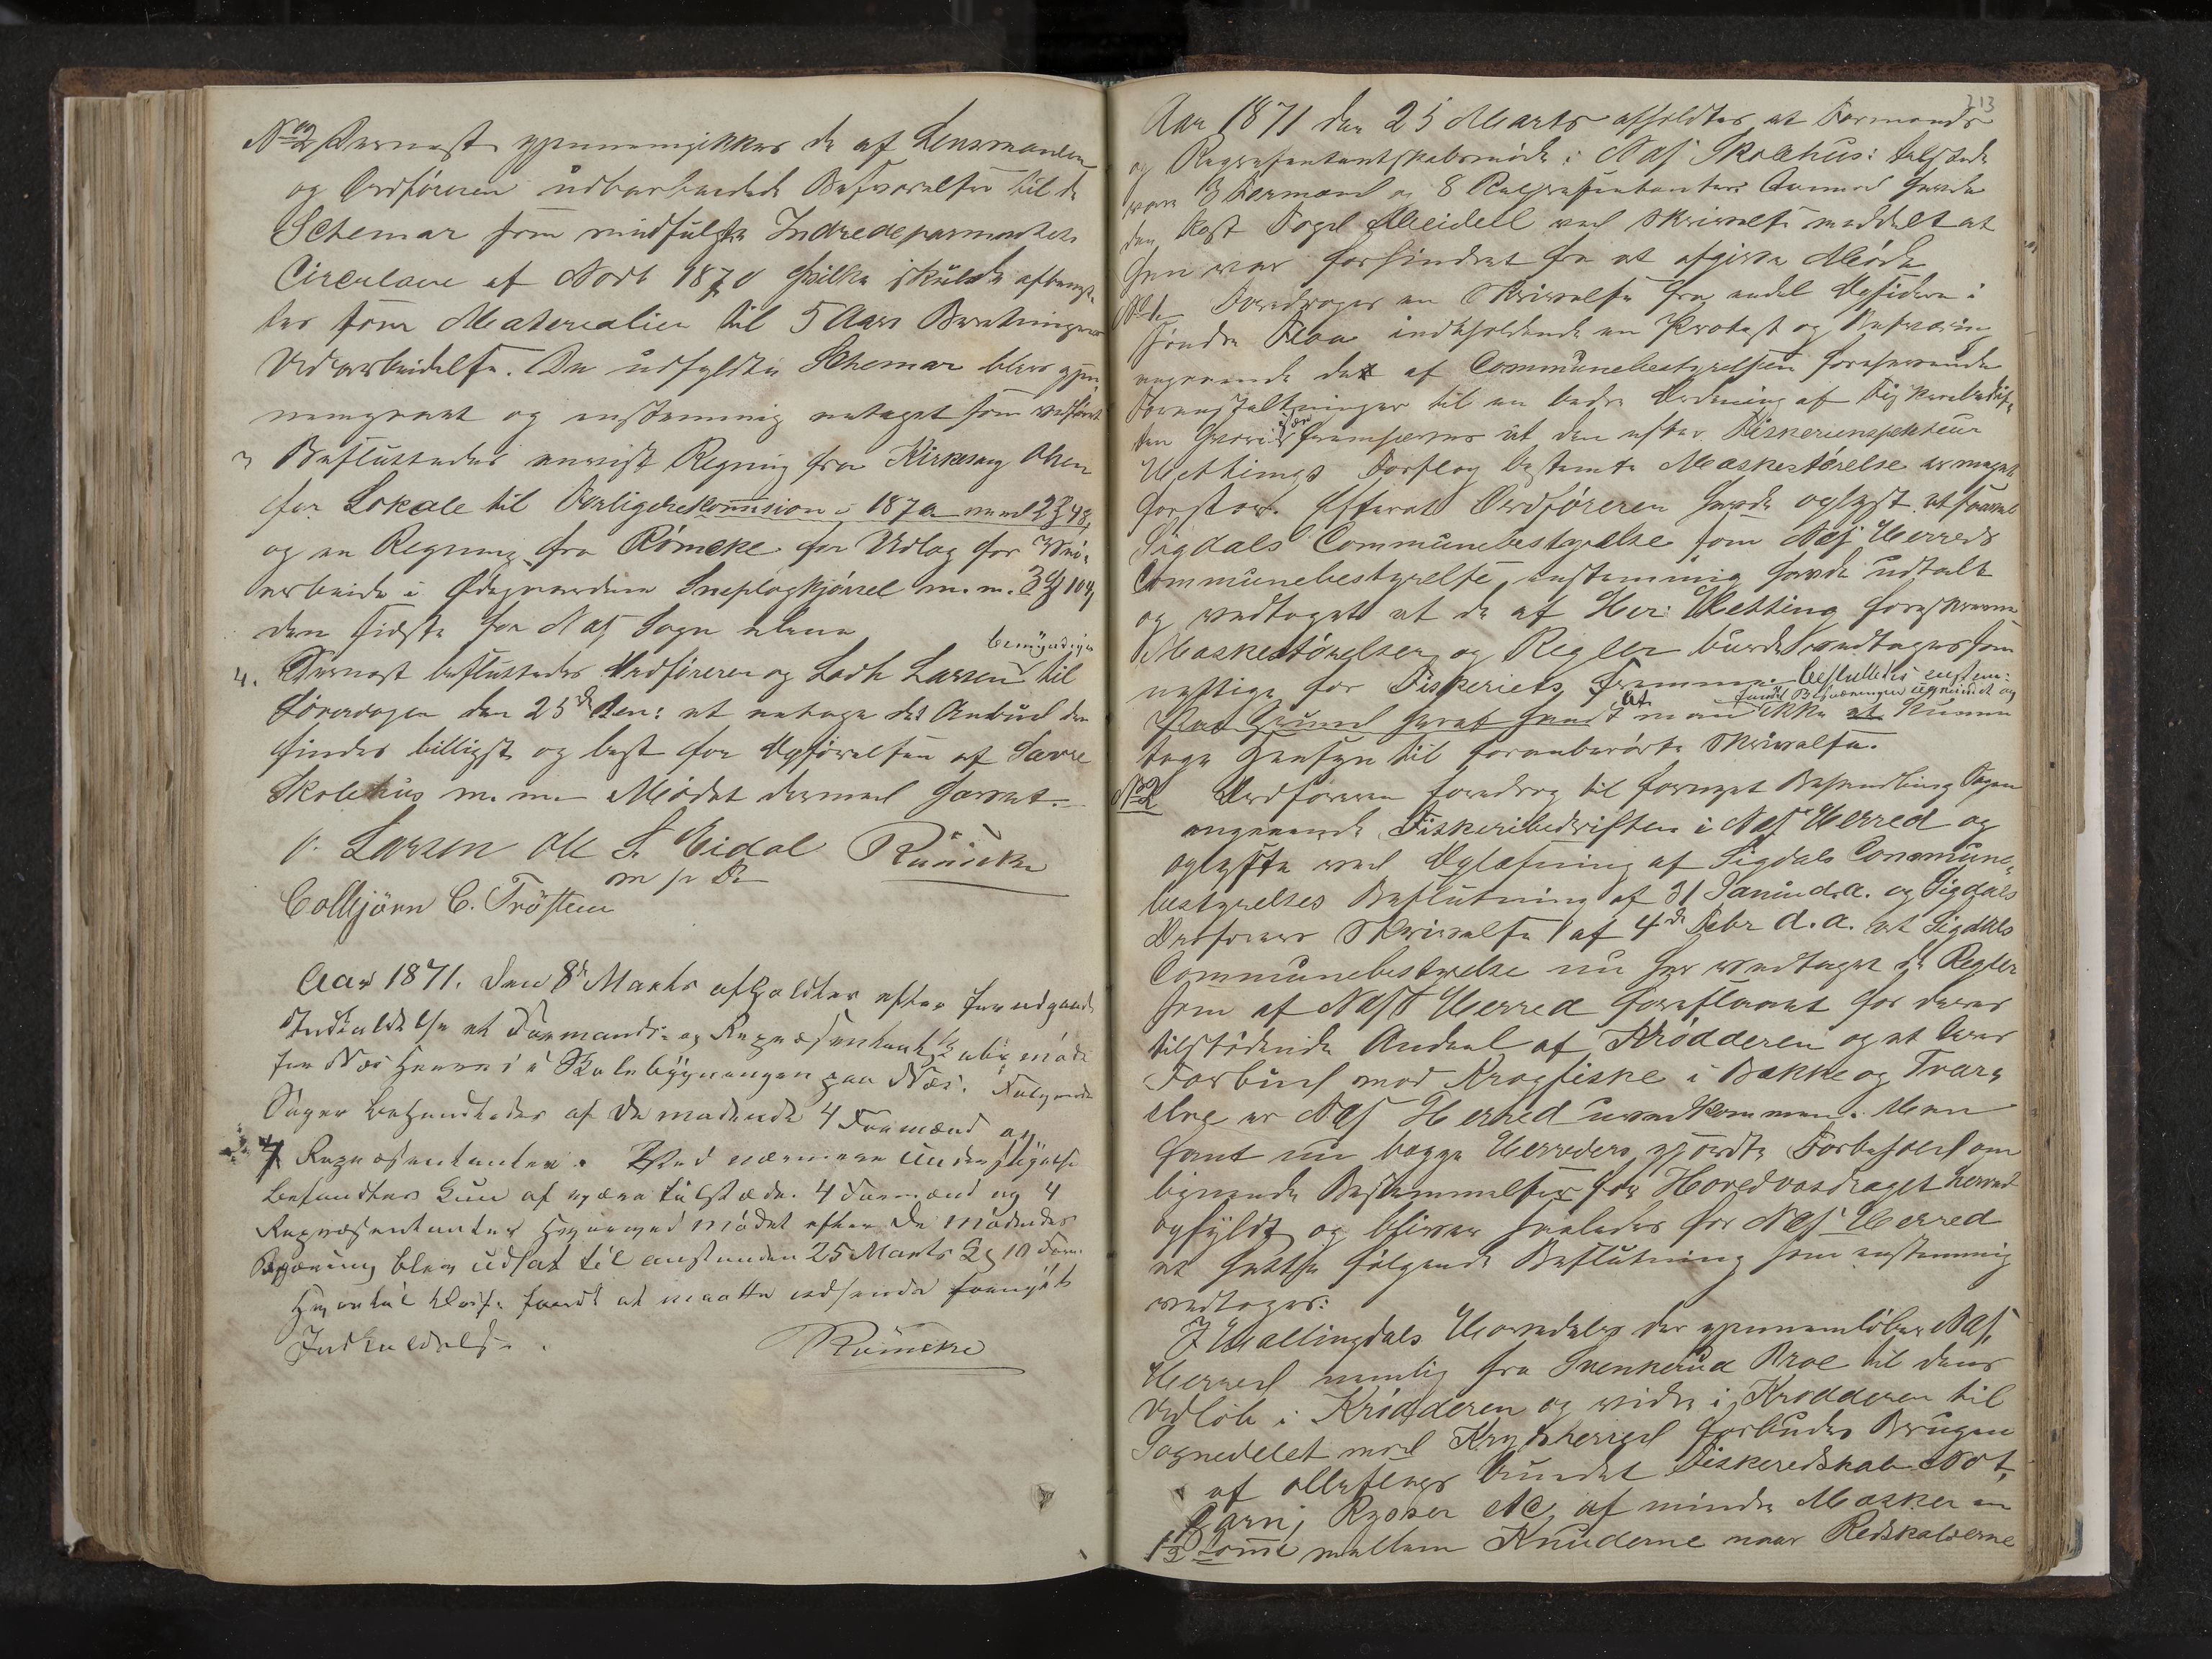 No 2 Dernæst gjennemgikkes de af Lensmanden
og Ordføreren udarbeidede Besvarelser til de
Schemar som medfulgte Indredepartmentets
Circulære af Novb 1870 hvilke skulde afbenyt-
tes som Materialier til 5 Aars Beretningens
Udarbeidelse. De udfyldte Schemar blev gjen-
nemgaaet og enstemmig antaget som vedført
3 Besluttedes anvist Regning fra Kirkesang Olsen
for Lokale til Forligelseskommision i 1870 med 2
og en Regning fra Römcke for Udlæg for
arbeide i Ødegaardene Sneplogkjørsel m. m. 3
den sidste for Næs Sogn alene
bemyndiges
4. Dernæst besluttedes Ordføreren og Lodh Larsen til
Løverdagen den 25de den: at antage det Anbud der
findes billigst og best for Opførelsen af Savre
Skolehus m. m. Mødet dermed hævet.
O. Larsen Ole S. Eidal Römcke
m p P
Colbjörn C. Tröstem
Aar 1871. Den 8de Marts afholdtes efter forudgaaende
Indkaldelse et Formands- og Repræsentantskabsmøde
for Næs Herred i Skolebygningen paa Næs. Følgende
Sager behandledes af de mødende 4 Formænd og
4 Repræsentanter. Ved nærmere Undersøgelse
befandtes kun at være tilstæde 4 Formænd og 4
Repræsentanter hvorved mødet efter de mødendes
blev udsat til anstundende 25 Marts Kl 10 Form.
hvortil fandt at maatte udsende fornyet
Indkaldelse. Römcke
213
Aar 1871 den 25 Marts afholdtes et Formands
og Repræsentantskabsmøde i Næs Skolehus: tilstede
vare 3 Formænd og 8 Repræsentanter
den Kost Foged Meidell ved Skrivelse meddelt at
han var forhindret fra at afgive Møde
No 1 Foredroges en Skrivelse fra endel Opsidere i
søndre Flaa indeholdende en Protest og Besværing
angaaende det af Communebestyrelsen forehavende
Foranstaltninger til en bedre Ordning af Fiskeribedrif-
ten hvori især fremhæves at den efter Fiskeriinspekteur
Hettings Forslag bestemte Maskestørelse er meget
for stor. Efterat Ordføreren havde oplyst at saavel
Sigdals Communebestyrelse som Næs Herreds
Communebestyrelse enstemmig havde udtalt
og vedtaget at de af Her: Hetting foreskrevne
Maskestørelser og Regler burde vedtages som
nyttige for Fiskeriets Fremme. besluttedes enstem:
fandt Besværingen ugrundet og
Paa Grund heraf fandt at man ikke at kunne
tage Hensyn til foranberørte Skrivelse.
No 2 Ordføreren foredrog til fornyet Behandling Sagen
angaaende Fiskeribedriften i Næs Herred og
oplyste ved Oplæsning af Sigdals Commune-
bestyrelses Beslutning af 31 Januar d.a. og Sigdals
Ordførers Skrivelse af 4de Febr d.a. at Sigdals
Communebestyrelse nu har vedtaget de Regler
som af Næs Herred foreslaaet for deres
tilstødende Andeel af Krödderen og at deres
Forbud mod Krogfiske i Bække og Tvær-
elve er Næs Herred uvedkommende. Men
samt nu begge Herreders gjordte Forbehold om
lignende Bestemmelser for Hovedvasdraget herved
opfyldt og bliver saaledes for Næs Herred
at fatte følgende Beslutning som enstemmig
vedtages:
I Hallingdals Hovedelv der gjennemløber Næs
Herred nemlig fra Svenkerud Broe til dens
Udløb i Krödderen og videre i Krödderen til
Sognedelet med Krydsherred forbudes Brugen
af alleslags bundet Fiskeredskab Not,
Garn, Rysser etc af mindre Masker en
1½ Tomme mellem Knuderne naar Redskaberne